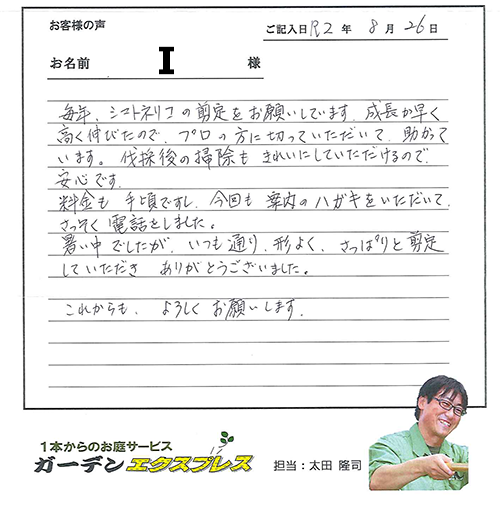 お客様の声
ご記入日 R2年 8月 26日
お名前 I 様
毎年、シマトネリコの剪定をお願いしています。成長が早く
高く伸びたので、プロの方に切っていただいて、助かって
います。伐採後の掃除もきれいにしていただけるので、
安心です。
料金も手頃ですし、今回も案内のハガキをいただいて、
さっそく電話をしました。
暑い中でしたが、いつも通り、形よく、さっぱりと剪定
していただきありがとうございました。
これからも、よろしくお願いします。
1本からのお庭サービス
ガーデンエクスプレス
担当:太田 隆司